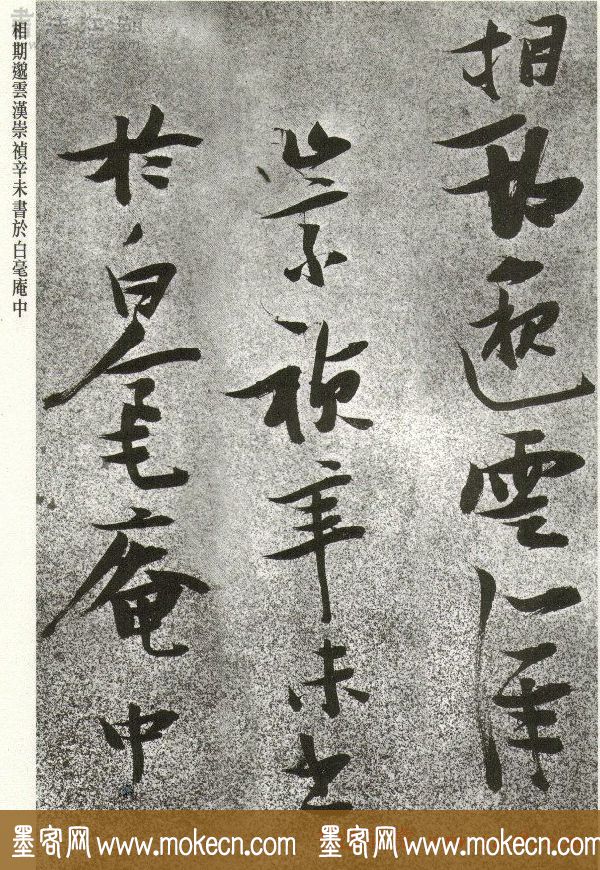 相期邈雲漢
崇禎辛未書
於白毫庵中
相期邈雲漢崇禎辛未書於白毫庵中
墨客网 www.mokecn.com 墨客网 www.mokecn.com